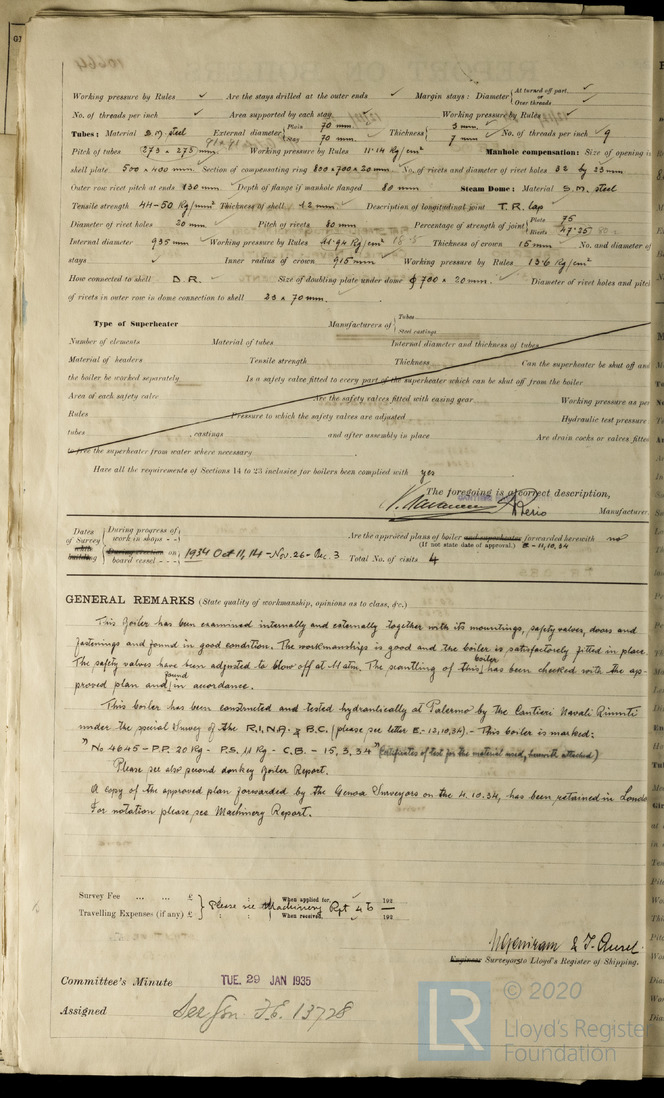 Working pressure by Rules ✓ Are the stays drilled at the outer ends ✓ Margin stays: Diameter { At turned off part, ✓ or Over threads ✓
No. of threads per inch ✓ Area supported by each stay ✓ Working pressure by Rules ✓
Tubes: Material S.M. steel External diameter { Plain 70 mm. Stay 70 mm. Thickness { 3 mm. 7 mm. No. of threads per inch 9
Pitch of tubes 273 x 273 mm. Working pressure by Rules 11.14 Kg/cm² Manhole compensation: Size of opening in
shell plate 500 x 400 mm. Section of compensating ring 800 x 700 x 20 mm. No. of rivets and diameter of rivet holes 32 by 23 mm
Outer row rivet pitch at ends 130 mm Depth of flange if manhole flanged 80 mm Steam Dome: Material S.M. steel
Tensile strength 44-50 Kg/mm² Thickness of shell 12 mm. Description of longitudinal joint T.R. lap
Diameter of rivet holes 20 mm. Pitch of rivets 80 mm Percentage of strength of joint { Plate 75 Rivets 47.25
Internal diameter 935 mm Working pressure by Rules 11.94 Kg/cm² Thickness of crown 15 mm No. and diameter of
stays ✓ Inner radius of crown 915 mm Working pressure by Rules 13.6 Kg/cm²
How connected to shell D.R. Size of doubling plate under dome ϕ 700 x 20 mm. Diameter of rivet holes and pitch
of rivets in outer row in dome connection to shell 23 x 70 mm.
Type of Superheater Manufacturers of { Tubes Steel castings
Number of elements Material of tubes Internal diameter and thickness of tubes
Material of headers Tensile strength Thickness Can the superheater be shut off and
the boiler be worked separately Is a safety valve fitted to every part of the superheater which can be shut off from the boiler
Area of each safety valve Are the safety valves fitted with easing gear Working pressure as per
Rules Pressure to which the safety valves are adjusted Hydraulic test pressure
tubes , castings and after assembly in place Are drain cocks or valves fitted
to free the superheater from water where necessary
Have all the requirements of Sections 14 to 23 inclusive for boilers been complied with yes
The foregoing is a correct description,
Manufacturer.
Dates of Survey while building { During progress of work in shops - - During erection on board vessel - - - } 1934 Oct 11, 14 - Nov. 26 - Dec. 3
Are the approved plans of boiler and superheater forwarded herewith no
(If not state date of approval.) E - 11.10.34
Total No. of visits 4
GENERAL REMARKS (State quality of workmanship, opinions as to class, &c.)
This Boiler has been examined internally and externally together with its mountings, safety valves, doors and
fastenings and found in good condition. The workmanship is good and the boiler is satisfactorily fitted in place.
The safety valves have been adjusted to blow off at 11 atm. The scantling of this boiler has been checked with the ap-
proved plan and found in accordance.
This boiler has been constructed and tested hydraulically at Palermo by the Cantieri Navali Riuniti
under the special Survey of the R.I.N.A. & B.C. (please see letter E - 12.10.34). - This boiler is marked:
"No 4645 - P.P. 20 Kg - P.S. 11 Kg - C.B. - 15, 3, 34" (Certificates of test for the material used, herewith attached)
Please see also second donkey Boiler Report.
A copy of the approved plan forwarded by the Genoa Surveyors on the 4.10.34, has been retained in London
For notation please see Machinery Report.
Survey Fee ... ... £ When applied for, 192
Please see Machinery Rpt 4b
Travelling Expenses (if any) £ When received, 192
Engineer Surveyors to Lloyd's Register of Shipping.
Committee's Minute TUE. 29 JAN 1935
Assigned See Gen. F.E. 13728
LR © 2020
Lloyd's Register
Foundation